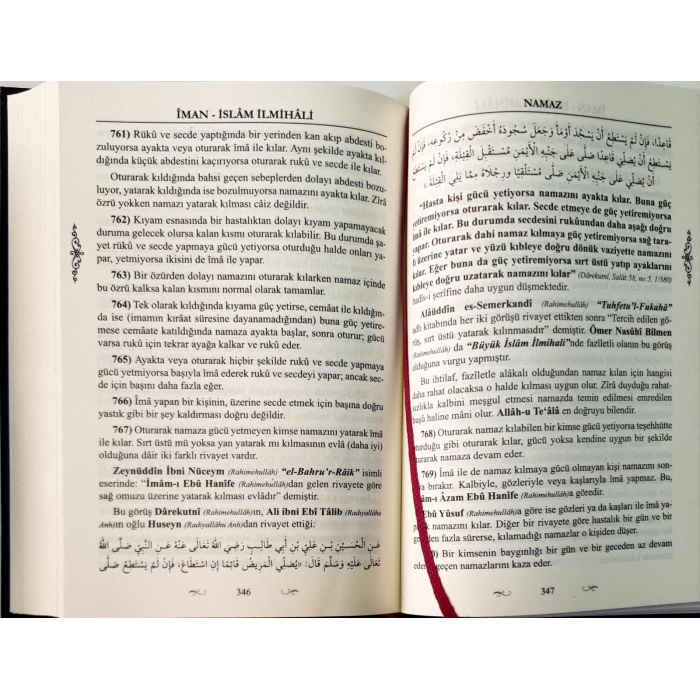 ÎMAN - İSLÂM İLMİHÂLİ
761) Rükû ve secde yaptığında bir yerinden kan akıp abdesti bo-
zuluyorsa ayakta veya oturarak îmâ ile kılar. Aynı şekilde ayakta kıl-
dığında küçük abdestini kaçırıyorsa oturarak rukû ve secde ile kılar.
Oturarak kıldığında bahsi geçen sebeplerden dolayı abdesti bozu-
luyor, yatarak kıldığında ise bozulmuyorsa namazını ayakta kılar. Zîrâ
özrü yokken namazı yatarak kılması câiz değildir.
762) Kıyam esnasında bir hastalıktan dolayı kıyam yapamayacak
duruma gelecek olursa kalan kısmı oturarak kılabilir. Bu durumda şa-
yet rükû ve secde yapmaya gücü yetiyorsa oturduğu halde onları ya-
par, yetmiyorsa ikisini de îmâ ile yapar.
763) Bir özürden dolayı namazını oturarak kılarken namaz içinde
bu özrü kalksa kalan kısmını normal olarak tamamlar.
764) Tek olarak kıldığında kıyama güç yetirse, cemaat ile kıldığın-
da ise (imamın kırâat süresine dayanamadığından) buna güç yetire-
mezse cemâate katıldığında namaza ayakta başlar, sonra oturur; gücü
varsa rukû için tekrar ayağa kalkar ve rukû eder.
765) Ayakta veya oturarak hiçbir şekilde rukû ve secde yapmaya
gücü yetmiyorsa başıyla îmâ ederek rukû ve secdeyi yapar; ancak sec-
de için başını daha fazla eğer.
766) Îmâ yapan bir kişinin, üzerine secde etmek için başına doğru
yastık gibi bir şey kaldırması doğru değildir.
767) Oturarak namaza gücü yetmeyen kimse namazını yatarak îmâ
ile kılar. Sırt üstü mü yoksa yan yatarak mı kılmasının evlâ (daha iyi)
olduğuna dâir iki farklı rivayet vardır.
Zeynüddîn İbni Nüceym (Rahimehullâh) “el-Bahru’r-Râik” isimli
eserinde: “İmâm-ı Ebû Hanîfe (Rahimehullâh)dan gelen rivayete göre
sağ omuzu üzerine yatarak kılması evlâdır” demiştir.
Bu görüş Dârekutnî (Rahimehullâh)ın, Ali ibni Ebî Tâlib (Radıyallâhu
Anh)ın oğlu Huseyn (Radıyallâhu Anh)dan rivayet ettiği:
عَنِ الْحُسَيْنِ بْنِ عَلِيِّ بْنِ أَبِي طَالِبٍ رَضِيَ اللهُ تَعَالَى عَنْهُ عَنِ النَّبِيِّ صَلَّى اللهُ
تَعَالَى عَلَيْهِ وَسَلَّمَ قَالَ: «يُصَلِّي الْمَرِيضُ قَائِمًا إِنِ اسْتَطَاعَ، فَإِنْ لَمْ يَسْتَطِعْ صَلَّى
346
NAMAZ
قَاعِدًا، فَإِنْ لَمْ يَسْتَطِعْ أَنْ يَسْجُدَ أَوْمَأَ وَجَعَلَ سُجُودَهُ أَخْفَضَ مِنْ رُكُوعِهِ، فَإِنْ لَمْ
يَسْتَطِعْ أَنْ يُصَلِّيَ قَاعِدًا صَلَّى عَلَى جَنْبِهِ الْأَيْمَنِ مُسْتَقْبِلَ الْقِبْلَةِ، فَإِنْ لَمْ يَسْتَطِعْ
أَنْ يُصَلِّيَ عَلَى جَنْبِهِ الْأَيْمَنِ صَلَّى مُسْتَلْقِيًا وَرِجْلَاهُ مِمَّا يَلِي الْقِبْلَةَ»
“Hasta kişi gücü yetiyorsa namazını ayakta kılar. Buna güç
yetiremiyorsa oturarak kılar. Secde etmeye de güç yetiremiyorsa
îmâ ile kılar. Bu durumda secdesini rukûundan daha aşağı doğru
yapar. Oturarak dahi namaz kılmaya güç yetiremiyorsa sağ tara-
fı üzerine yatar ve yüzü kıbleye doğru dönük vaziyette namazını
kılar. Eğer buna da güç yetiremiyorsa sırt üstü yatıp ayaklarını
kıbleye doğru uzatarak namazını kılar” (Dârekutnî, Salât:58, no:5, 1/380)
hadis-i şerîfine daha uygun düşmektedir.
Alâüddîn es-Semerkandî (Rahimehullâh) “Tuhfetu’l-Fukahâ”
adlı kitabında her iki görüşü rivayet ettikten sonra “Tercih edilen gö-
rüş, sırt üstü yatarak kılınmasıdır” demiştir. Ömer Nasûhî Bilmen
(Rahimehullâh) da “Büyük İslâm İlmihali”nde fazîletli olanın bu görüş
olduğuna vurgu yapmıştır.
Bu ihtilaf, fazîletle alâkalı olduğundan namaz kılan için hangisi
daha rahat olacaksa o halde kılması uygun olur. Zîrâ duyduğu rahat-
sızlıkla kalbini meşgul etmesi namazda temin edilmesi emredilen
huşû haline mâni olur. Allâh-u Te‘âlâ en doğruyu bilendir.
768) Oturarak namaz kılabilen bir kimse gücü yetiyorsa teşehhütte
oturduğu gibi oturarak kılar, gücü yoksa kendine uygun bir şekilde
oturarak namaza devam eder.
769) Îmâ ile de namaz kılmaya gücü olmayan kişi namazını son-
raya bırakır. Kalbiyle, gözleriyle veya kaşlarıyla îmâ yapmaz. Bu,
İmâm-ı Âzam Ebû Hanîfe (Rahimehullâh)a göredir.
Ebû Yûsuf (Rahimehullâh)a göre ise gözleri ya da kaşları ile îmâ ya-
parak namazını kılar. Diğer bir rivayete göre hastalık bir gün ve bir
geceden fazla sürerse, kılamadığı namazları o kişiden düşer.
) Bir kimsenin baygınlığı bir gün ve bir geceden az devam
ederse geçen namazlarını kaza eder.
347